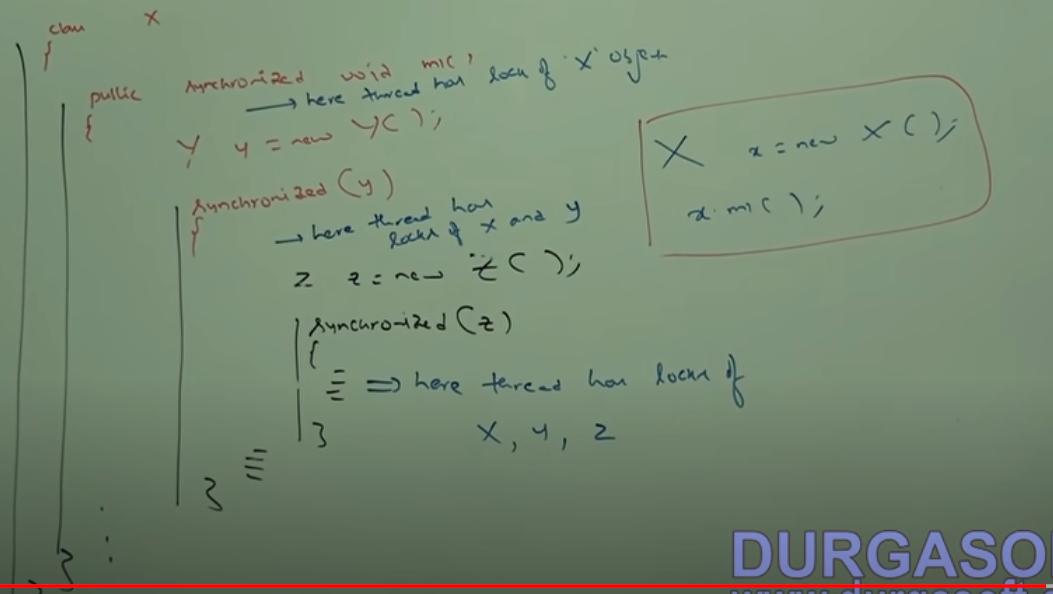 class X
{
public synchronized void m1( )
{
→ here thread has lock of 'X' object
Y y = new Y( );
synchronized (y)
{
→ here thread has
locks of X and y
Z z = new Z( );
synchronized (z)
{
⇒ here thread has locks of
X, Y, Z
}
}
}
X x = new X ( );
x.m1( );
DURGASO